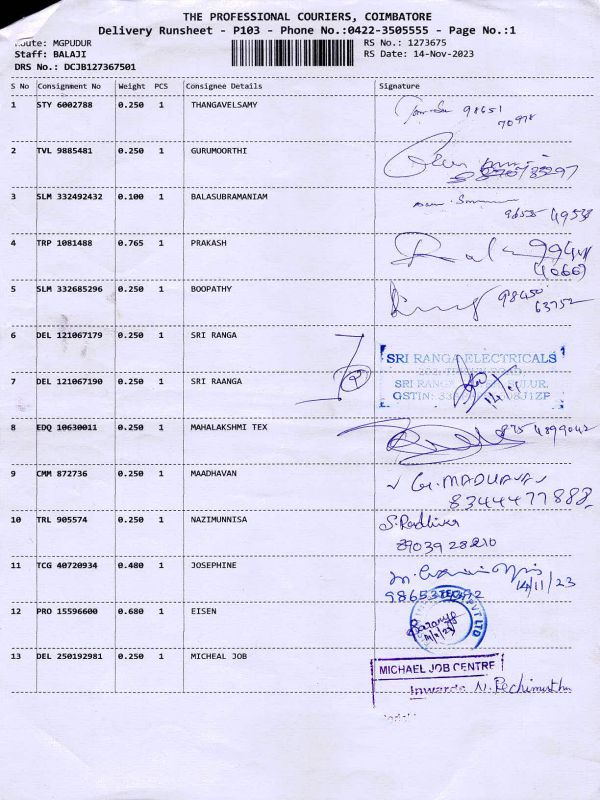 THE PROFESSIONAL COURIERS, COIMBATORE
Delivery Runsheet - P103 - Phone No.:0422-3505555 - Page No.:1
Route: MGPUDUR RS No.: 1273675
Staff: BALAJI RS Date: 14-Nov-2023
DRS No.: DCJB127367501
S No Consignment No Weight PCS Consignee Details Signature
1 STY 6002788 0.250 1 THANGAVELSAMY 98651
70978
2 TVL 9885481 0.250 1 GURUMOORTHI
3 SLM 332492432 0.100 1 BALASUBRAMANIAM
49538
4 TRP 1081488 0.765 1 PRAKASH
(1066)
5 SLM 332685296 0.250 1 BOOPATHY 98450
63752
6 DEL 121067179 0.250 1 SRI RANGA SRI RANGA ELECTRICALS
7 DEL 121067190 0.250 1 SRI RAANGA SRI SULUR.
GSTIN:
8 EDQ 10630011 0.250 1 MAHALAKSHMI TEX 4899042
9 CMM 872736 0.250 1 MAADHAVAN G. MADHAVAN
8344477888
10 TRL 905574 0.250 1 NAZIMUNNISA
89039 28210
11 TCG 40720934 0.480 1 JOSEPHINE 14/11/23
12 PRO 15596600 0.680 1 EISEN PVT LTD
13 DEL 250192981 0.250 1 MICHEAL JOB MICHAEL JOB CENTRE
Inwards N. Pechimuthu